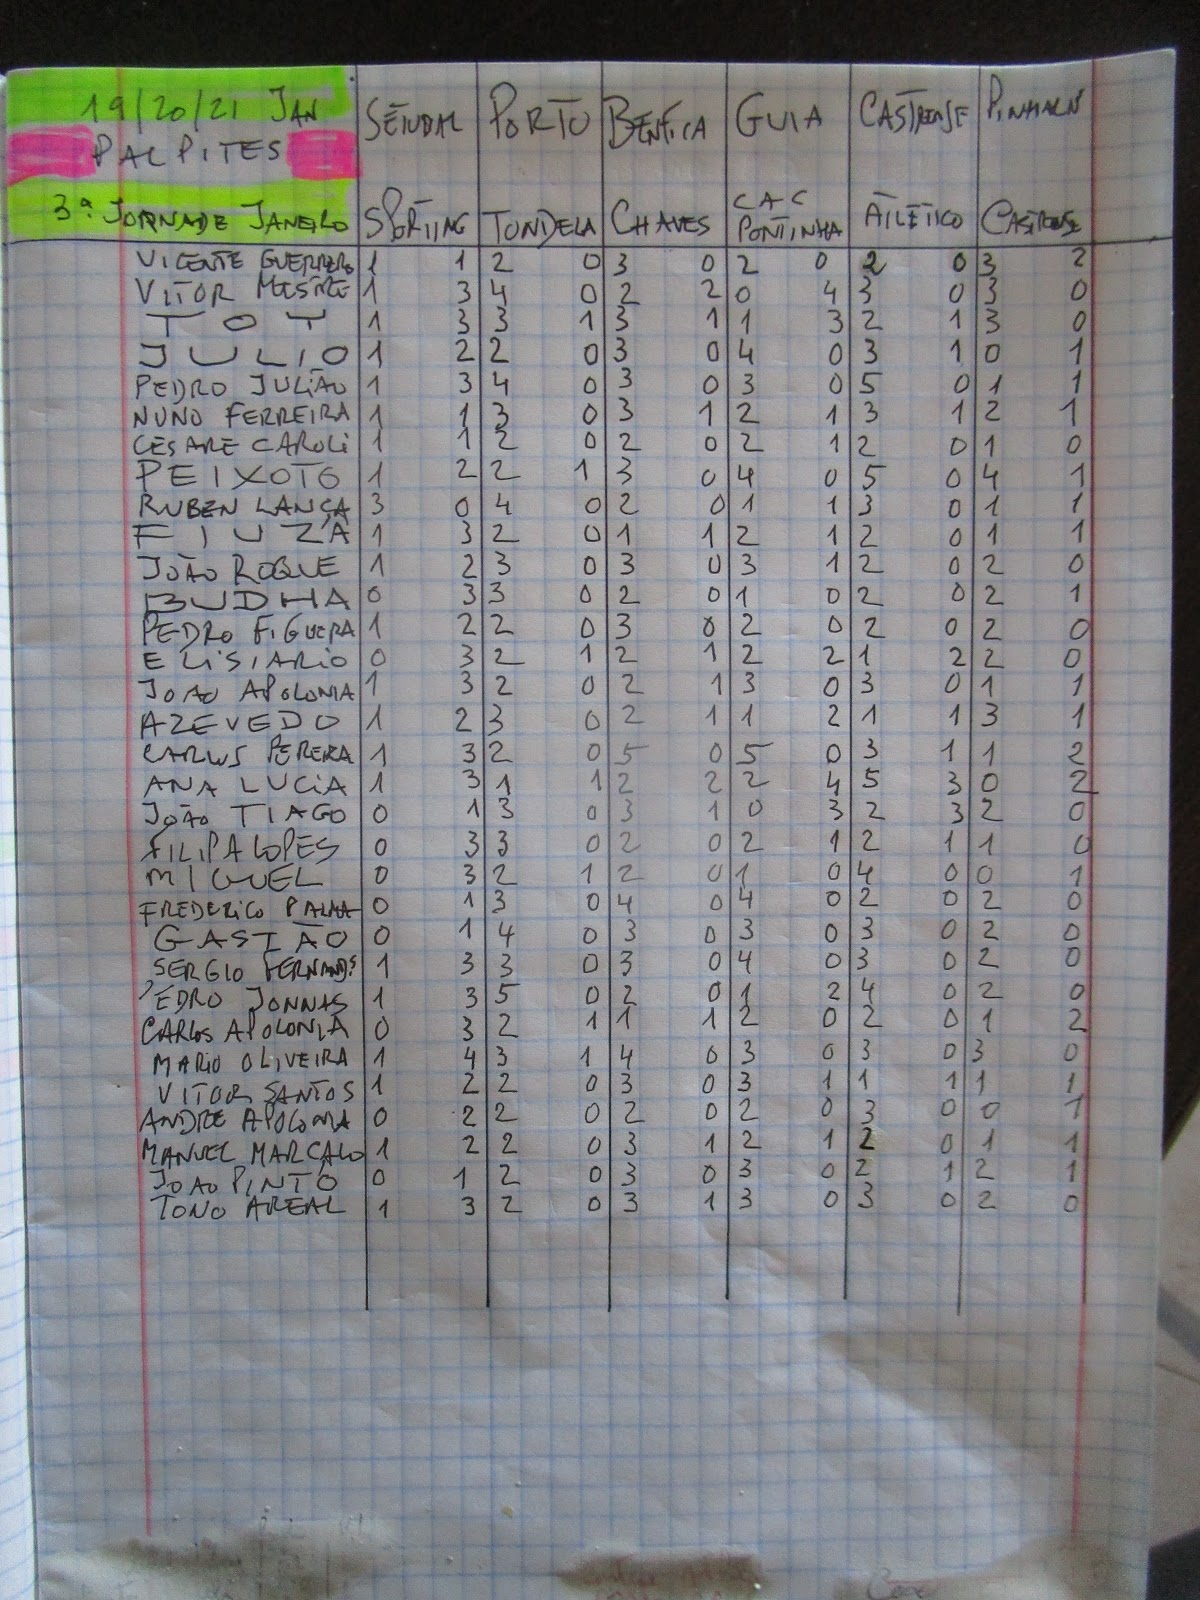 19/20/21 JAN SETUBAL PORTO BENFICA GUIA CASTRENSE PINHALN
PALPITES
3ª JORNADE JANEIRO SPORTING TONDELA CHAVES CAC PONTINHA ATLETICO CASTRENSE
VICENTE GUERRERO 1 1 2 0 3 0 2 0 2 0 3 2
VITOR MESTRE 1 3 4 0 2 2 0 4 3 0 3 0
TOY 1 3 3 1 3 1 1 3 2 1 3 0
JULIO 1 2 2 0 3 0 4 0 3 1 0 1
PEDRO JULIÃO 1 3 4 0 3 0 3 0 5 0 1 1
NUNO FERREIRA 1 1 3 0 3 1 2 1 3 1 2 1
CESARE CAROLI 1 1 2 0 2 0 2 1 2 0 1 0
PEIXOTO 1 2 2 1 3 0 4 0 5 0 4 1
RUBEN LANÇA 3 0 4 0 2 0 1 1 3 0 1 1
FIUZA 1 3 2 0 1 1 2 1 2 0 1 1
JOÃO ROQUE 1 2 3 0 3 0 3 1 2 0 2 0
BUDHA 0 3 3 0 2 0 1 0 2 0 2 1
PEDRO FIGUERA 1 2 2 0 3 0 2 0 2 0 2 0
ELISIARIO 0 3 2 1 2 1 2 2 1 2 2 0
JOAO APOLONIA 1 3 2 0 2 1 3 0 3 0 1 1
AZEVEDO 1 2 3 0 2 1 1 2 1 1 3 1
CARLOS PEREIRA 1 3 2 0 5 0 5 0 3 1 1 2
ANA LUCIA 1 3 1 1 2 2 2 4 5 3 0 2
JOÃO TIAGO 0 1 3 0 3 1 0 3 2 3 2 0
FILIPA LOPES 0 3 3 0 2 0 2 1 2 1 1 0
MIGUEL 0 3 2 1 2 0 1 0 4 0 0 1
FREDERICO PALMA 0 1 3 0 4 0 4 0 2 0 2 0
GASTÃO 0 1 4 0 3 0 3 0 3 0 2 0
SERGIO FERNANDS 1 3 3 0 3 0 4 0 3 0 2 0
PEDRO JONNAS 1 3 5 0 2 0 1 2 4 0 2 0
CARLOS APOLONIA 0 3 2 1 1 1 2 0 2 0 1 2
MARIO OLIVEIRA 1 4 3 1 4 0 3 0 3 0 3 0
VITOR SANTOS 1 2 2 0 3 0 3 1 1 1 1 1
ANDRE APOLONIA 0 2 2 0 2 0 2 0 3 0 0 1
MANUEL MARCALO 1 2 2 0 3 1 2 1 2 0 1 1
JOAO PINTO 0 1 2 0 3 0 3 0 2 1 2 1
TONO AREAL 1 3 2 0 3 1 3 0 3 0 2 0